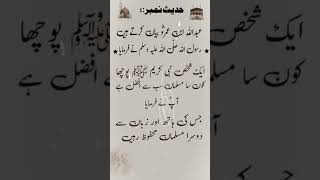 حدیث نمبر::
عبداللہ ابن عمرؓ بیان کرتے ہیں
رسول اللہ صلی اللہ علیہ وسلم نے فرمایا
ایک شخص نبی کریم ﷺ پوچھا
کون سا مسلمان سب سے افضل ہے
آپؐ نے فرمایا
جس کی ہاتھ اور زبان سے
دوسرا مسلمان محفوظ رہیں
ایک شخص ﷺ پوچھا
کون سا